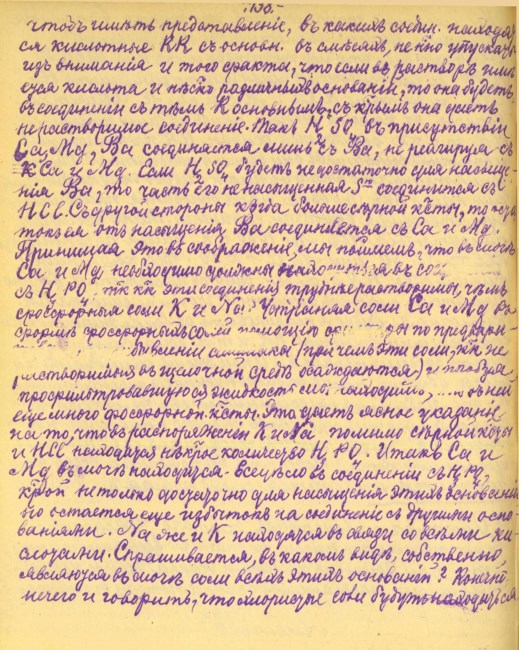 чтобъ имѣть представленіе, въ какихъ соедин. находя-
ся кислотныя КК съ основ. въ смѣсяхъ, не нужно упускать
изъ вниманія и того факта, что если въ растворѣ имѣ-
ется кислота и нѣск различныхъ основаній, то она будетъ
въ соединеніи съ тѣмъ К основнымъ, съ крымъ она даетъ
нерастворимое соединеніе. Такъ H2SO4 въ присутствіи
Ca, Mg, Ba соединяется лишь съ Ba, не реагируя съ
Ca и Mg. Если H2SO4 будетъ недостаточно для насыще-
нія Ba, то часть его не насыщенная соединится съ
HCl. Съ другой стороны когда больше сѣрной к-ты, то
токъ ея отъ насыщенія Ba соединяется съ Ca и Mg.
Принимая это въ соображеніе, мы поймемъ, что въ мочѣ
Ca и Mg необходимо должны находиться въ
съ H3PO4 ткъ ккъ эти соединенія труднѣе растворимы, чѣмъ
фосфорныя соли К и Na. Устраняя соли Ca и Mg въ
формѣ фосфорныхъ солей помощію по предвари-
амміака (причемъ эти соли, ккъ не
растворимыя въ щелочной средѣ осаждаются) и
профильтровавшуюся жидкость находимъ, въ ней
еще много фосфорной к-ты. Это даетъ ясное указаніе
на то, что въ распоряженіи К и Na помимо сѣрной к-ты
и HCl находится нѣкрое количество H3PO4. Итакъ Ca и
Mg въ мочѣ находятся всецѣло въ соединеніи съ H3PO4,
крой не только достаточно для насыщенія этихъ основаній
но остается еще избытокъ на соединеніе съ другими осно-
ваніями. Na же и К находятся въ связи со всѣми ки-
слотами. Спрашивается, въ какомъ видѣ, собственно,
являются въ мочѣ соли всѣхъ этихъ основаній? Конечно
нечего и говорить, что хлористыя соли будутъ находиться